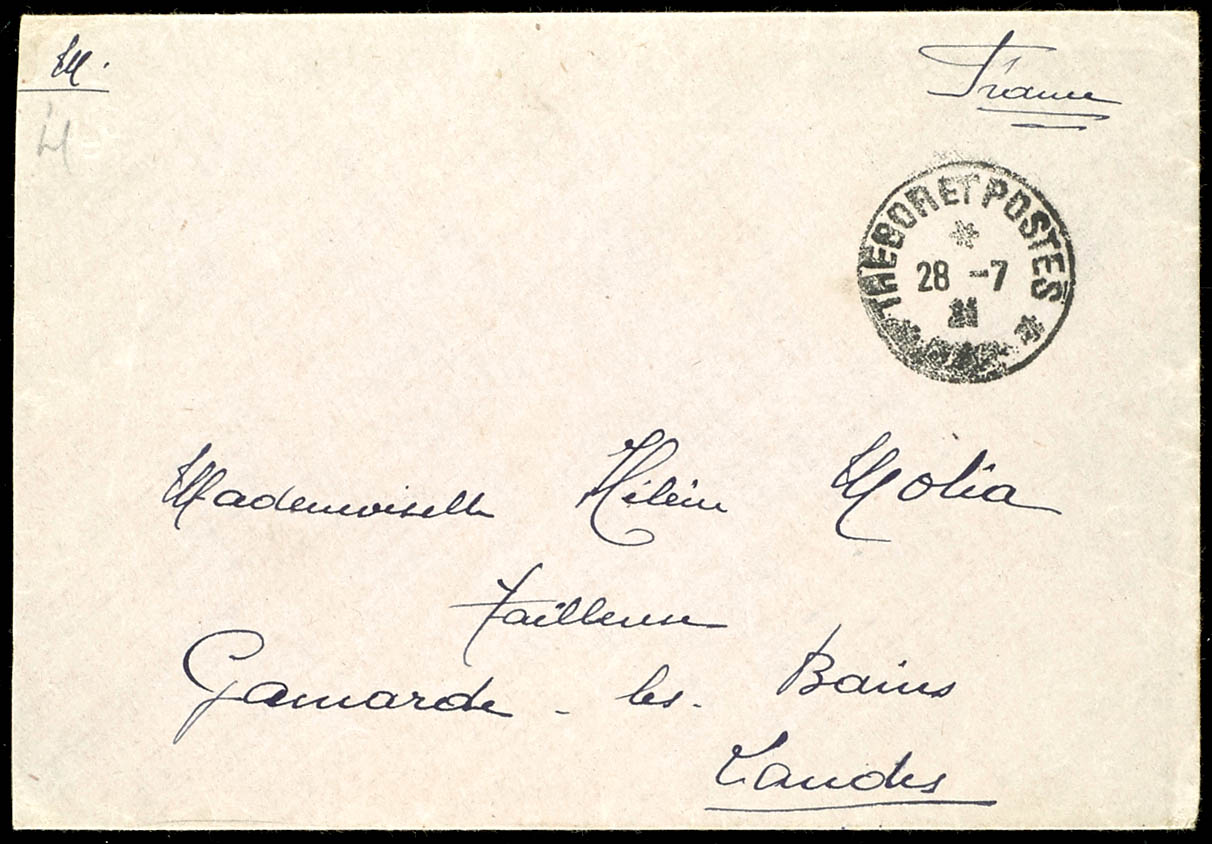 M.
France
TRESOR ET POSTES
28 -7
21
Mademoiselle Hélène Molia
Tailleuse
Gamarde - les - Bains
Landes